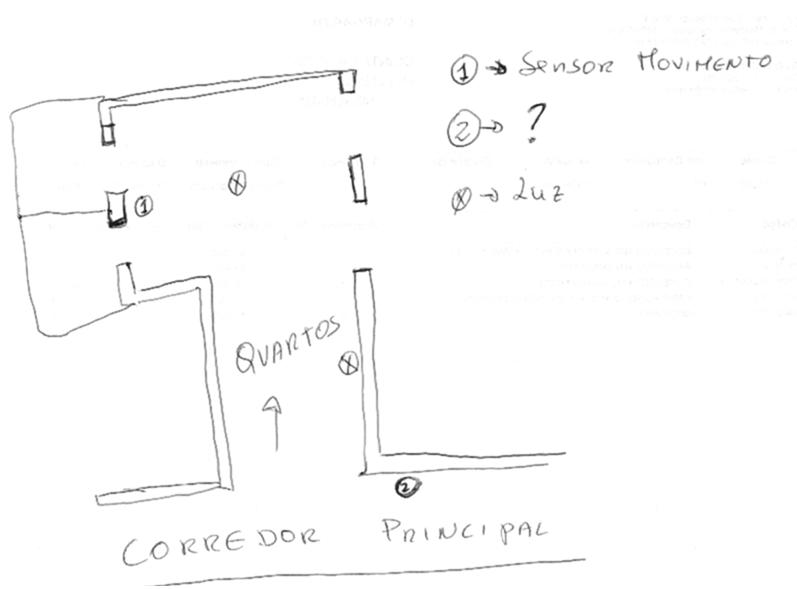 ① → Sensor MOVIMENTO
② → ?
ⓧ → Luz
ⓧ
①
QUARTOS
ⓧ
②
CORREDOR PRINCIPAL